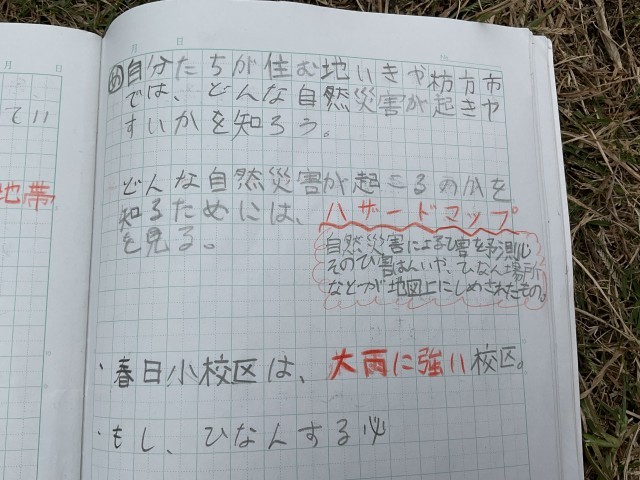 月 日
て11
地帯
月 日
No.
め 自分たちが住む地いきや枚方市
では、どんな自然災害が起きや
すいかを知ろう。
どんな自然災害が起こるのかを
知るためには、ハザードマップ
を見る。
自然災害によるひ害を予測し
そのひ害はんいや、ひなん場所
などが地図上にしめされたもの。
・春日小校区は、大雨に強い校区。
・もし、ひなんする必